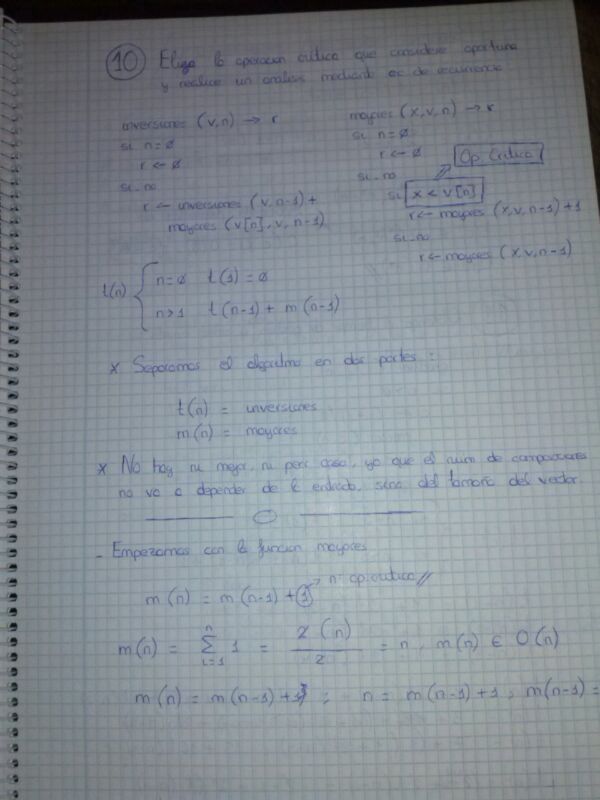 10 Elija la operacion critica que considere oportuna
y realice un analisis mediante ec de recurrencia
inversiones (v,n) → r
si n = ø
r ← ø
si_no
r ← inversiones (v, n-1) +
mayores (v[n], v, n-1)
mayores (x,v,n) → r
si n = ø
r ← ø
si_no
Op. Critica
si x < v[n]
r ← mayores (x,v,n-1) + 1
si_no
r ← mayores (x,v,n-1)
t(n) { n = ø t(1) = ø
n > 1 t(n-1) + m(n-1)
* Separamos el algoritmo en dos partes :
t(n) = inversiones
m(n) = mayores
* No hay ni mejor, ni peor caso, ya que el num de comparaciones
no va a depender de la entrada, sino del tamaño del vector.
- Empezamos con la funcion mayores
m(n) = m(n-1) + 1 → nº op. critica //
m(n) = n Σ i=1 1 = 2(n) / 2 = n, m(n) ∈ O(n)
m(n) = m(n-1) + 1 ; n = m(n-1) + 1 , m(n-1) =